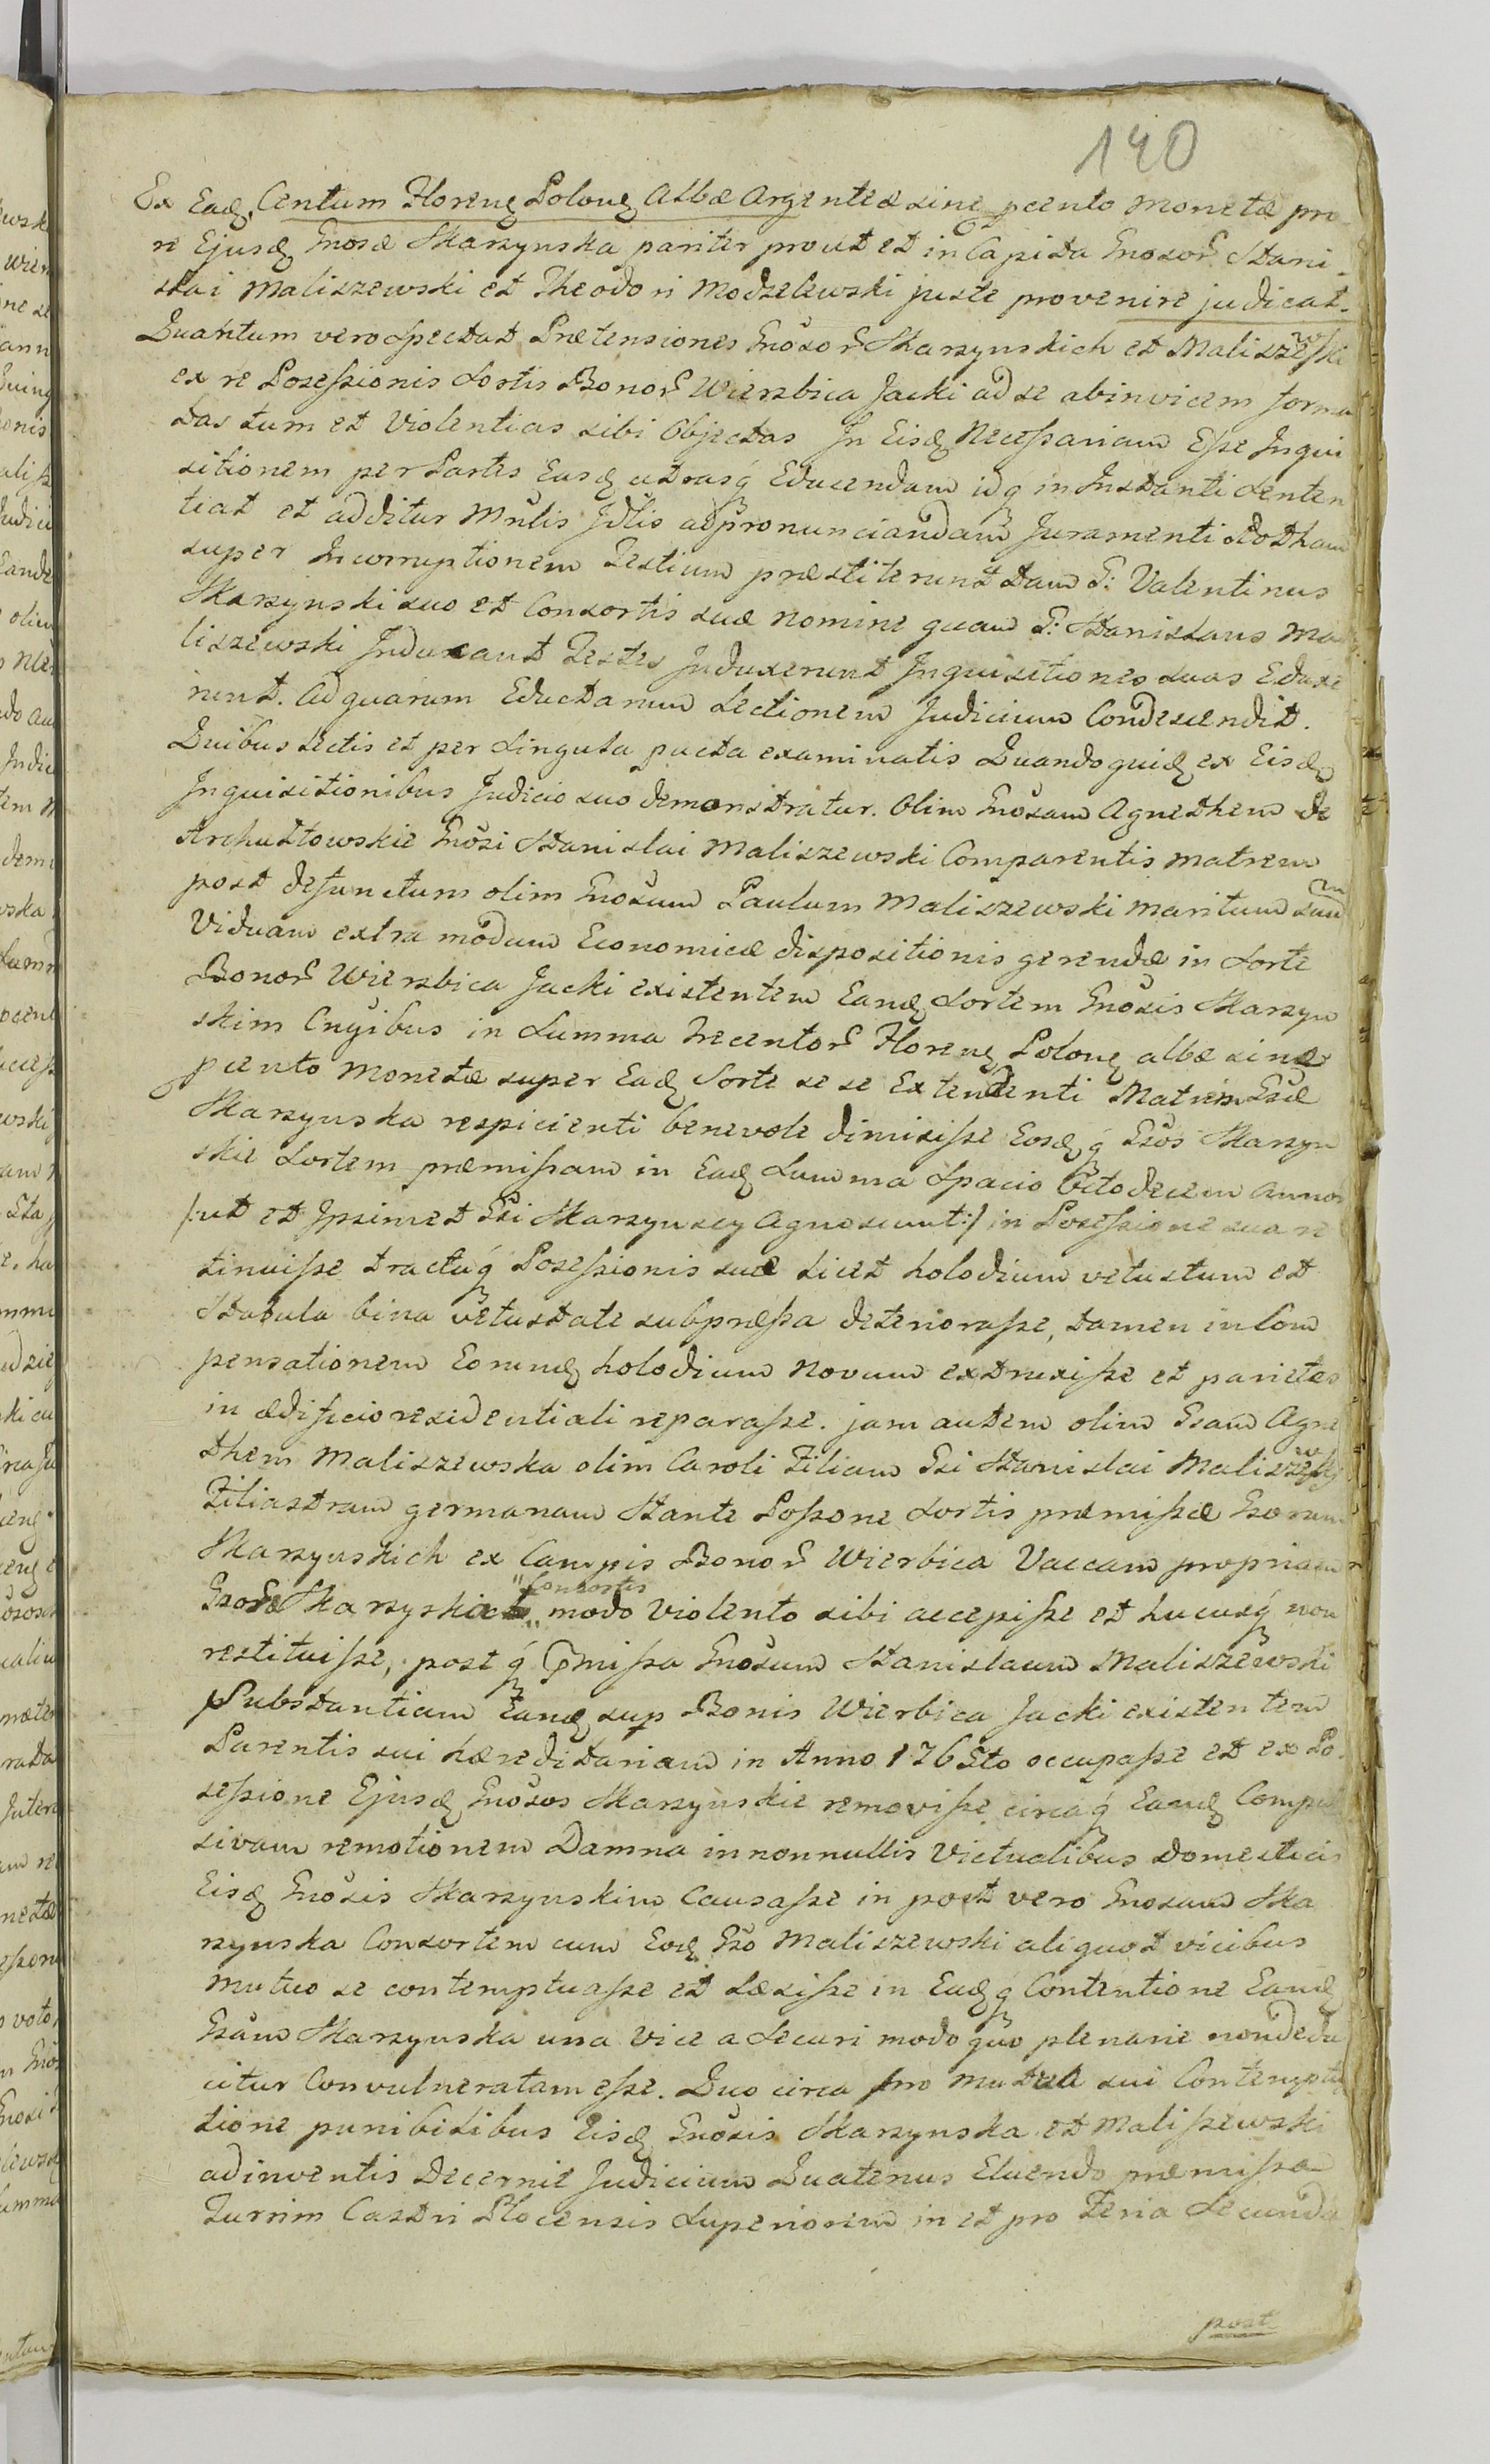 140
Ex Eadꝫ Centum Florenꝫ Polonꝫ Albæ Argenteæ sine pcento Monetæ pro
re Ejusdꝫ Gnosæ Skarzynska pariter prout et in Capita Gnosor̃ Stani-
slai Maliszewski et Theodori Modzelewski juste provenire judicat.
Quantum vero Spectat Prætensiones Gnosor̃ Skarzynskich et Maliszewski
ex re Posessionis Sortis Bonor̃ Wierzbica Jacki ad se abinvicem forma
tas tum et Violentias sibi Objectas In Eisdꝫ Necessariam Esse Inqui
sitionem per Partes Easdꝫ utrasq́ Educendam idq́ in Instanti Senten
tiat et additur Mnlis Jdlis ad pronunciandam Juramenti Rotham
super Incorruptionem Testium præstiterunt tam G: Valentinus
Skarzynski suo et Consortis suæ nomine quam G: Stanislaus Ma
liszewski Inducant Testes Induxerunt Inquisitiones suas Eduxe
runt. Ad quarum Eductarum Lectionem Judicium Condescendit.
Quibus Lectis et per Singula pucta examinatis Quandoquidꝫ ex Eisdꝫ
Inquisitionibus Judicio suo demonstratur. Olim Gnosam Agnethem de
Archutowskie Gnosi Stanislai Maliszewski Comparentis Matrem
post defunctum olim Gnosum Paulum Maliszewski Maritum suum
Viduam extra modum Economicæ dispositionis gerendæ in Sorte
Bonor̃ Wierzbica Jacki existentem Eandꝫ Sortem Gnosis Skarzyn
skim Cngibus in Summa Trecentor̃ Florenꝫ Polonꝫ albæ sine
pcento Monetæ super Eadꝫ Sorte se se Extendenti Matrem Gsæ
Skarzynska respicienti benevole dimisisse Eosdꝫq́ Gsos Skarzyn
skie Sortem præmissam in Eadꝫ Summa Spacio Octodecem Annor̃
/:ut et Ipsimet Gsi Skarzynscy Agnoscunt:/ in Posessione sua re
tinuisse tractuq́ Posessionis suæ licet holodium vetustum et
Stabula bina vetustate subpræssa deteriorasse, tamen in Com
pensationem Eorundꝫ holodium Novum extruxisse et parietes
in ædificio residentiali reparasse. jam autem olim Gsam Agne
them Maliszewska olim Caroli Filiam Gsi Stanislai Maliszewski
Filiastram germanam Stante Possone Sortis præmissæ Gsorum
Skarzynskich ex Campis Bonor̃ Wierbica Vaccam propriam
Gsoræ Skarzyska "Consortis" modo Violento sibi accepisse et hucusq́ non
restituisse, postq́ præmissa Gnosum Stanislaum Maliszewski
Substantiam Eandꝫ sup Bonis Wierbica Jacki existentem
Parentis sui hæreditariam in Anno 1765to occupasse et ex Po-
sessione Ejusdꝫ Gnosos Skarzynskie removisse circaq́ Eandꝫ Compul
sivam remotionem Damna in nonnullis Victualibus Domesticis
Eisdꝫ Gnosis Skarzynskim Causasse in post vero Gnosam Ska
rzynska Consortem cum Eodꝫ Gso Maliszewski aliquot vicibus
mutuo se contemptuasse et Læsisse in Eadꝫq́ Contentione Eandꝫ
Gsam Skarzynska una Vice a Securi modo quo plenarie non dedu
citur Convulneratam esse. Quo circa pro mutua sui Contempta
tione punibilibus Eisdꝫ Gnosis Skarzynska et Maliszewski
adinventis Decernit Judicium Quatenus Eluendo præmissa
Turrim Castri Plocensis Superiorem in et pro Feria Secunda
post